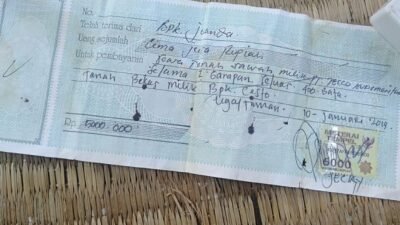 No.
Telah terima dari Bpk Junda
Uang sejumlah Lima Juta Rupiah
Untuk pembayaran Sewa Tanah sawah milik
selama 1 Garapan seluas 400 bata.
Tanah Bekas milik Bpk.
10 - Januari 2019.
Rp. 5000.000
METERAI
TEMPEL
6000